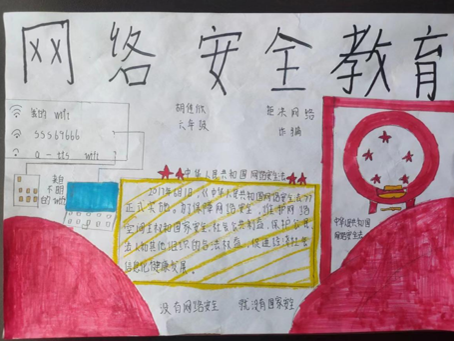 网络安全教育
胡佳欣
六年级
惩决网络
诈骗
我的 wifi
55564666
Q-tis wifi
来自
不同
的地址
中华人民共和国网络安全法
2017年6月1日,《中华人民共和国网络安全法》
正式实施。旨保障网络安全,维护网络
空间主权和国家安全、社会公共利益,保护公民、
法人和其他组织的合法权益,促进经济社会
信息化健康发展。
中华人民共和国
网络安全法
没有网络安全 就没有国家安全